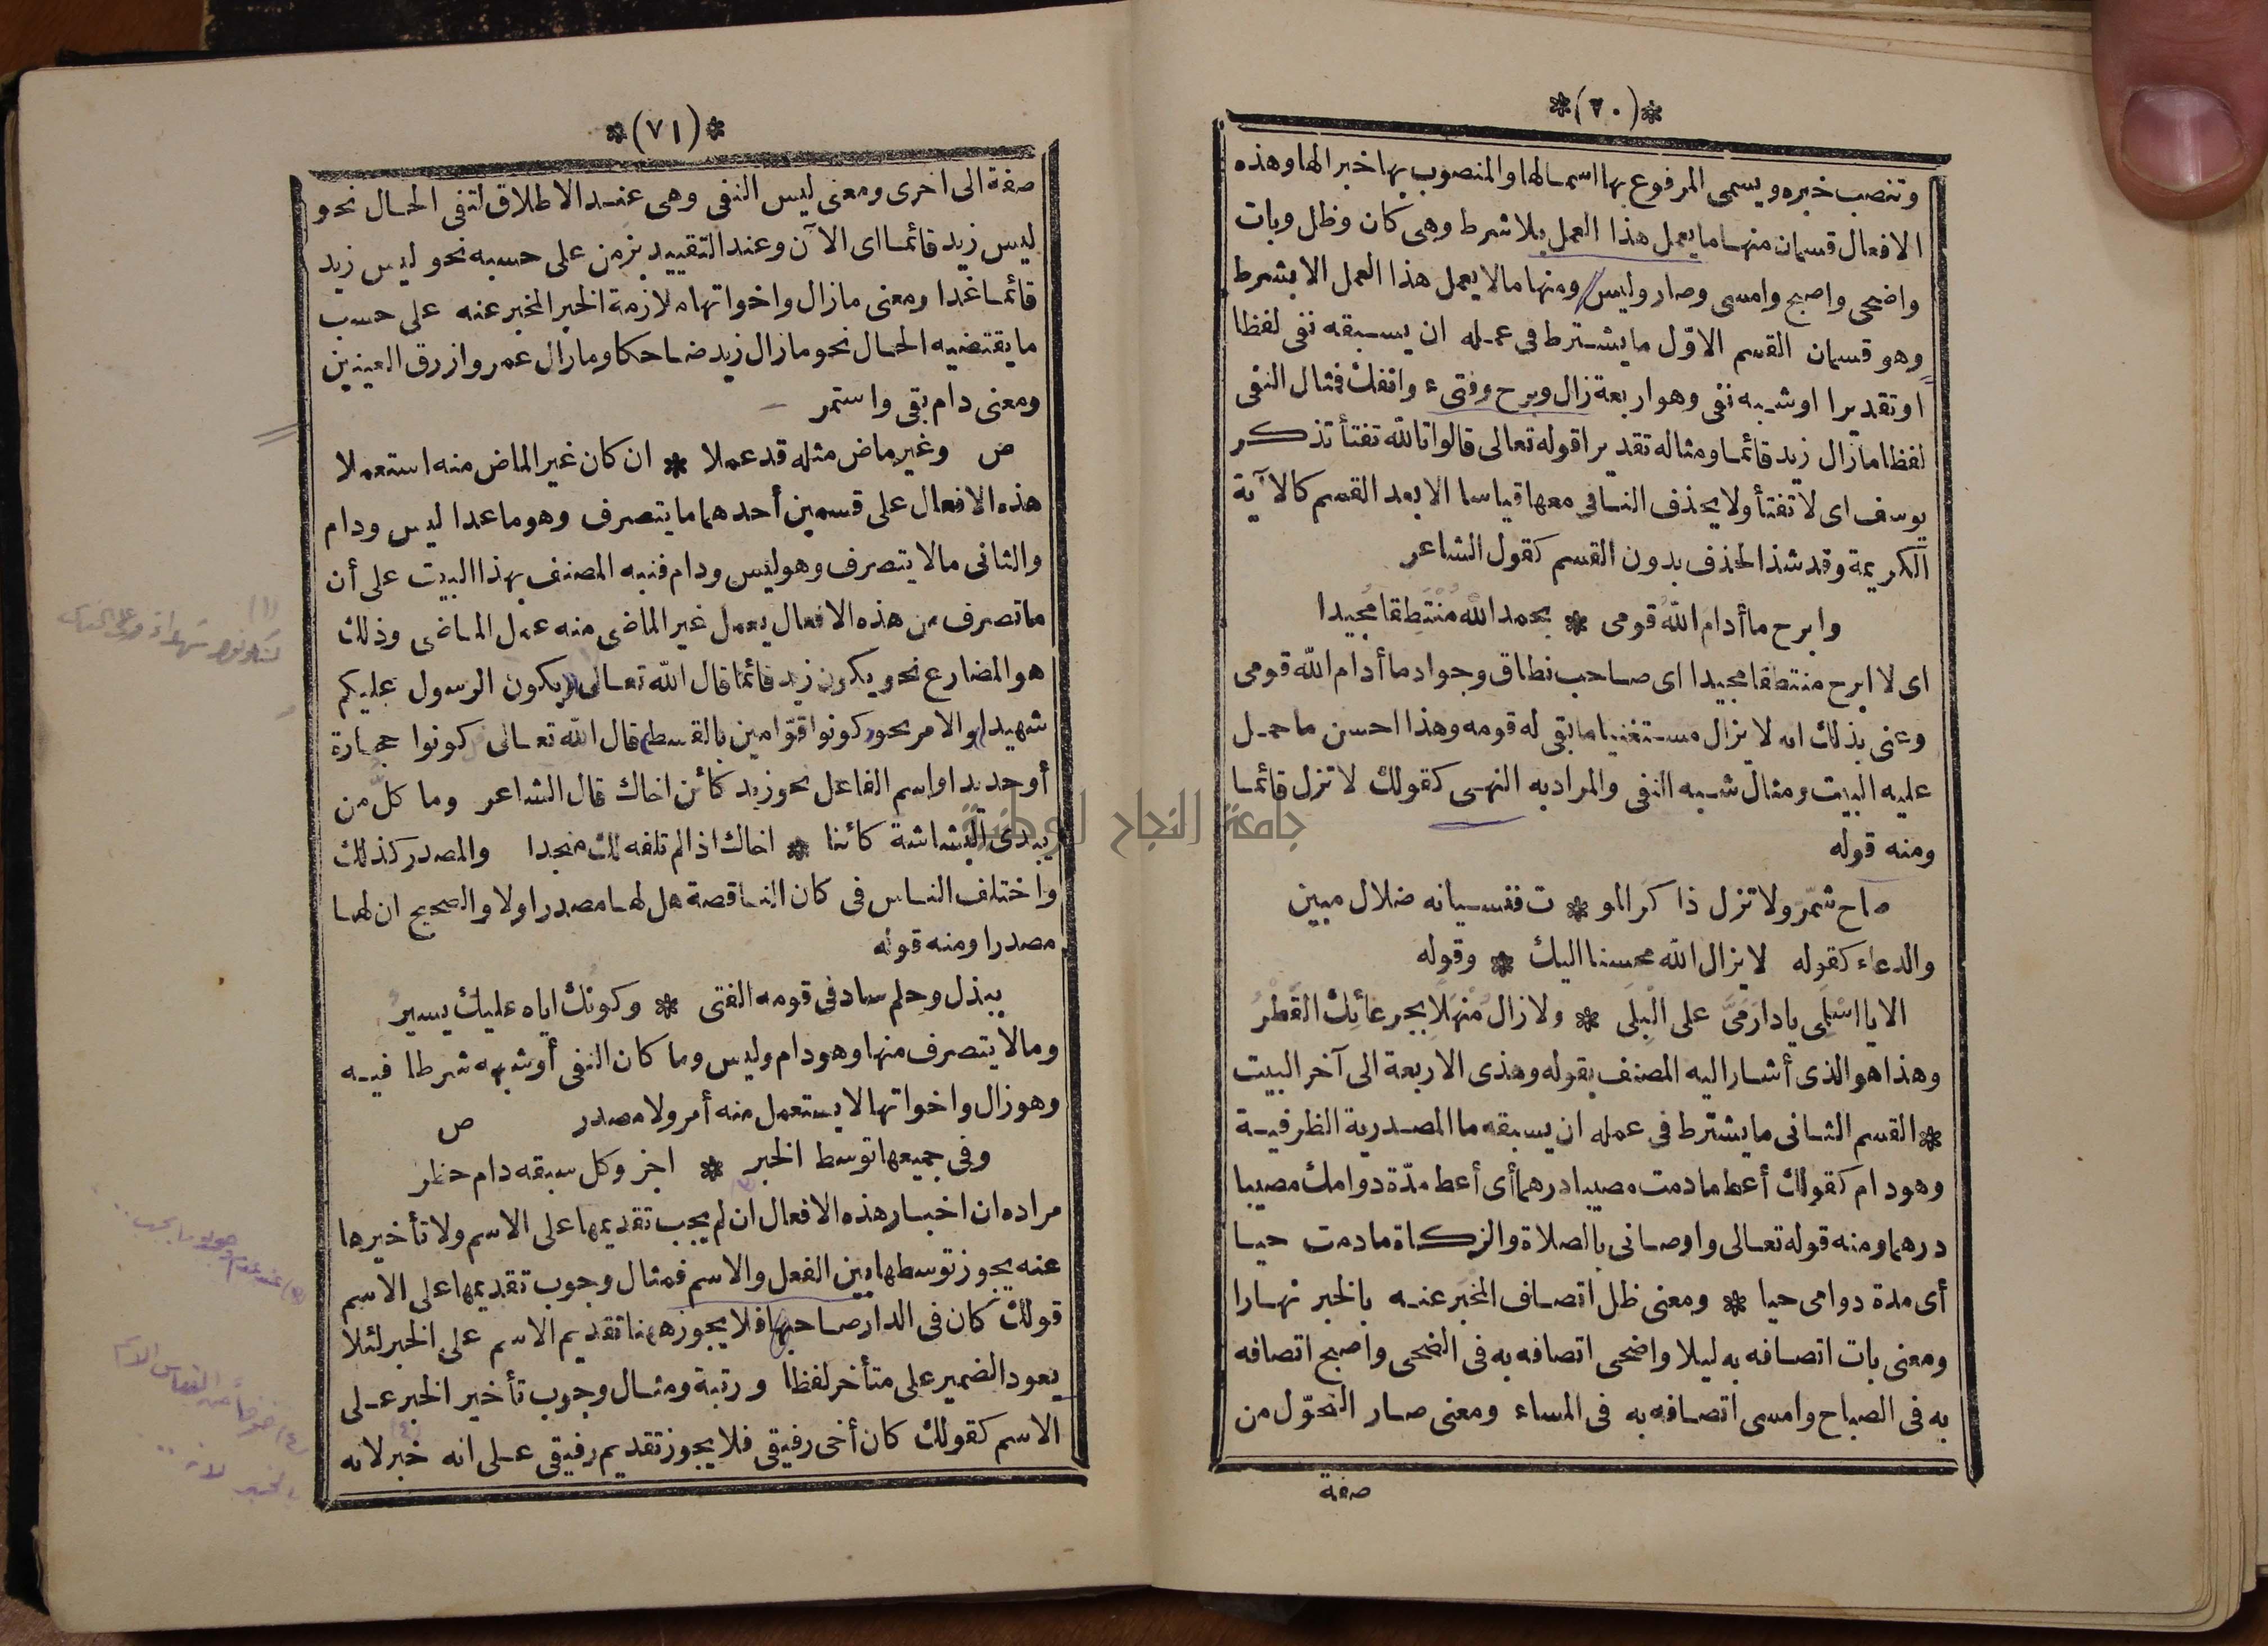 *(٧٠)*
وتنصب خبره ويسمى المرفوع بها اسما لها والمنصوب بها خبرا لها وهذه
الافعال قسمان منها ما يعمل هذا العمل بلا شرط وهى كان وظل وبات
واضحى واصبح وامسى وصار وليس ومنها ما لا يعمل هذا العمل الا بشرط
وهو قسمان القسم الاوّل ما يشترط فى عمله ان يسبقه نفى لفظا
او تقديرا او شبه نفى وهو اربعة زال وبرح وفتىء وانفك فمثال النفى
لفظا ما زال زيد قائما ومثاله تقديرا قوله تعالى قالوا تالله تفتأ تذكر
يوسف اى لا تفتأ ولا يحذف النافى معها قياسا الا بعد القسم كالآية
الكريمة وقد شذ الحذف بدون القسم كقول الشاعر
وابرح ما أدام اللهُ قومى * بحمد الله مُنْتَطِقا مُجيدا
اى لا ابرح منتطقا مجيدا اى صاحب نطاق وجواد ما أدام الله قومى
وعنى بذلك انه لا يزال مستغنيا ما بقى له قومه وهذا احسن ما حمل
عليه البيت ومثال شبه النفى والمراد به النهى كقولك لا تزل قائما
ومنه قوله
صاح شمّر ولا تزل ذاكر المو * ت فنسيانه ضلال مبين
والدعاء كقوله لا يزال الله محسنا اليك * وقوله
الا يا اسْلَمِى يا دارَ مَىَّ على الْبِلَى * ولا زال مُنْهَلاًّ بجرعائكِ القَطْرُ
وهذا هو الذى أشار اليه المصنف بقوله وهذى الاربعة الى آخر البيت
* القسم الثانى ما يشترط فى عمله ان يسبقه ما المصدرية الظرفية
وهو دام كقولك أعط ما دمت مصيبا درهما أى أعط مدّة دوامك مصيبا
درهما ومنه قوله تعالى واوصانى بالصلاة والزكاة ما دمت حيا
أى مدة دوامى حيا * ومعنى ظل اتصاف المخبر عنه بالخبر نهارا
ومعنى بات اتصافه به ليلا واضحى اتصافه به فى الضحى واصبح اتصافه
به فى الصباح وامسى اتصافه به فى المساء ومعنى صار التحوّل من
صفة
*(٧١)*
صفة الى اخرى ومعنى ليس النفى وهى عند الاطلاق لنفى الحال نحو
ليس زيد قائما اى الآن وعند التقييد بزمن على حسبه نحو ليس زيد
قائما غدا ومعنى ما زال واخواتها ملازمة الخبر المخبر عنه على حسب
ما يقتضيه الحال نحو ما زال زيد ضاحكا وما زال عمرو ازرق العينين
ومعنى دام بقى واستمر
ص وغير ماض مثله قد عملا * ان كان غير الماض منه استعملا
هذه الافعال على قسمين أحدهما ما يتصرف وهو ما عدا ليس ودام
والثانى ما لا يتصرف وهو ليس ودام فنبه المصنف بهذا البيت على أن
ما تصرف من هذه الافعال يعمل غير الماضى منه عمل الماضى وذلك
هو المضارع نحو يكون زيد قائما قال الله تعالى ويكون الرسول عليكم
شهيدا والامر نحو كونوا قوّامين بالقسط قال الله تعالى كونوا حجارة
أو حديدا واسم الفاعل نحو زيد كائن اخاك قال الشاعر وما كلُّ من
يبدى البشاشة كائنا * اخاك اذا لم تلفه لك منجدا والمصدر كذلك
واختلف الناس فى كان الناقصة هل لها مصدر اولا والصحيح ان لها
مصدرا ومنه قوله
ببذل وحلم ساد فى قومه الفتى * وكونُك اياه عليك يسيرُ
وما لا يتصرف منها وهو دام وليس وما كان النفى أو شبهه شرطا فيه
وهو زال واخواتها لا يستعمل منه أمر ولا مصدر ص
وفى جميعها توسط الخبر * اجز وكل سبقه دام حظر
مراده ان اخبار هذه الافعال ان لم يجب تقديمها على الاسم ولا تأخيرها
عنه يجوز توسطها بين الفعل والاسم فمثال وجوب تقديمها على الاسم
قولك كان فى الدار صاحبها فلا يجوز ههنا تقديم الاسم على الخبر لئلا
يعود الضمير على متأخر لفظا ورتبة ومثال وجوب تأخير الخبر على
الاسم كقولك كان أخى رفيقى فلا يجوز تقديم رفيقى على انه خبر لانه
جامعة النجاح الوطنية